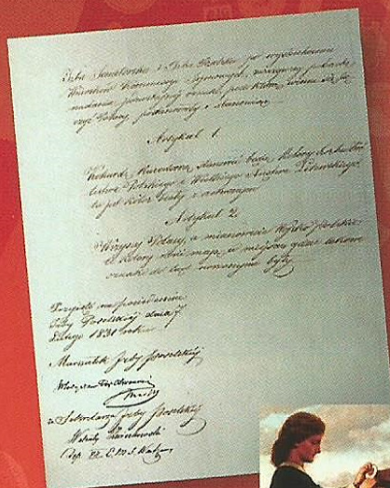 Izba Senatorska i Izba Poselska po wysłuchaniu
Wniosków Kommissyi Sejmowych, zważywszy potrzebę
nadania jednostajnej oznaki, pod którą winni się łą-
czyć Polacy, postanowiły i stanowią:
Artykuł 1.
Kokardę Narodową stanowić będą kolory herbu Kró-
lestwa Polskiego i Wielkiego Xięstwa Litewskiego,
to jest kolor biały z czerwonym.
Artykuł 2.
Wszyscy Polacy, a mianowicie Wojsko Polskie
te kolory nosić mają w miejscu gdzie takowe
oznaki do tąd noszonymi były.
Przyjęto na posiedzeniu
Izby Poselskiej dnia 7
Lutego 1831 roku.
Marszałek Izby Poselskiej
Sekretarz Izby Poselskiej